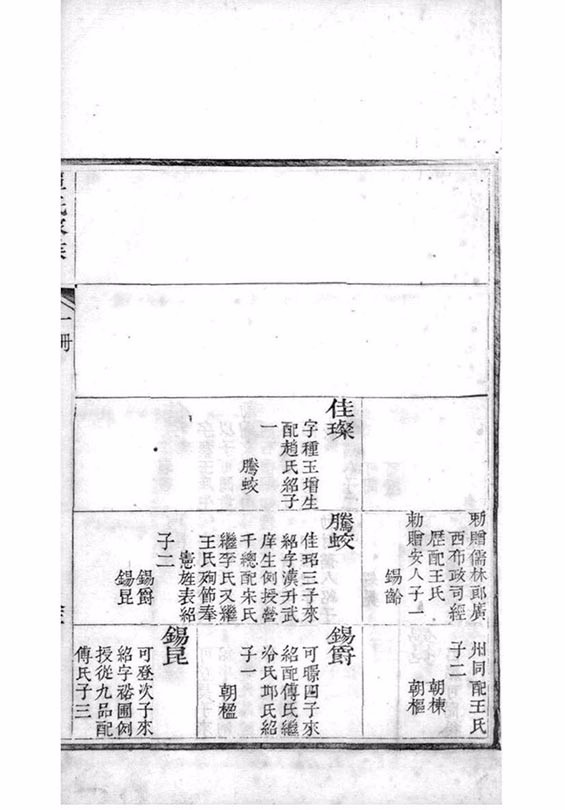 佳璨
字種玉增生
配趙氏紹子
一
騰蛟
勅贈儒林郎廣
西布政司經
歷配王氏
勅贈安人子一
錫齡
騰蛟
佳玿三子來
紹字漢升武
庠生例授營
千總配宋氏
繼李氏又繼
王氏殉節奉
憲旌表紹
子二
錫爵
錫昆
州同配王氏
子二
朝棟
朝樞
錫爵
可璟四子來
紹配傅氏繼
冷氏邱氏紹
子一
朝楹
錫昆
可登次子來
紹字裕圃例
授從九品配
傅氏子三
一冊